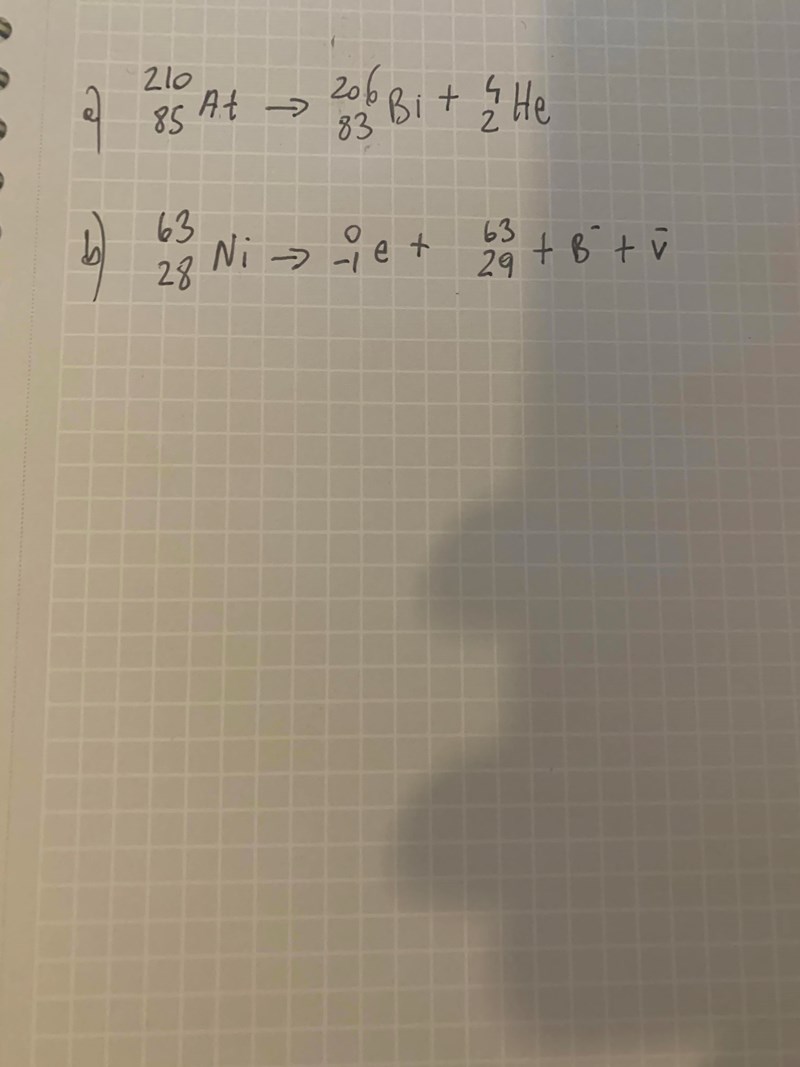 a) ²¹⁰₈₅At → ²⁰⁶₈₃Bi + ⁴₂He
b) ⁶³₂₈Ni → ⁰₋₁e + ⁶³₂₉ + B⁻ + v̄